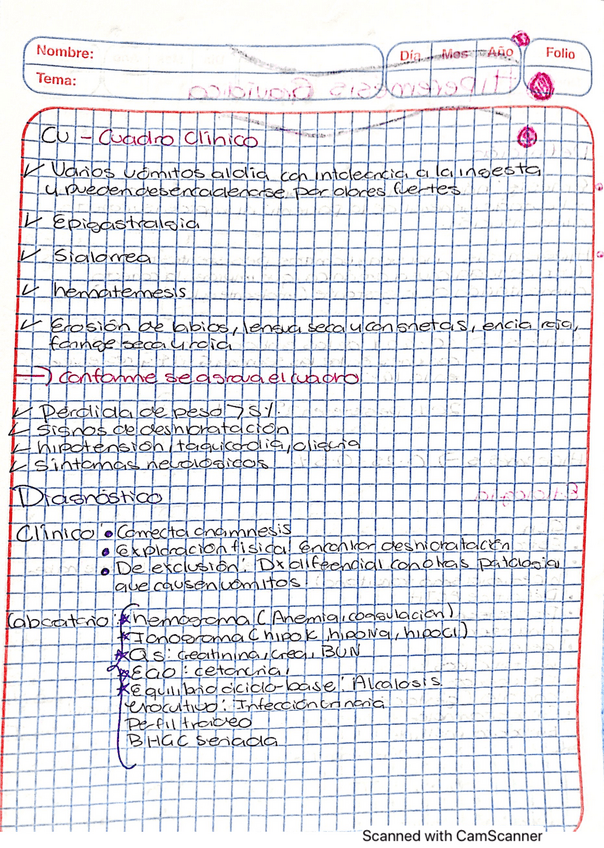 Nombre:
Día Mes Año
Folio
Tema:
Hiperemesis Gravídica
CU - Cuadro Clínico
✓ Varios vómitos al día con intoleencia a la ingesta
y pueden desencadenarse por olores fuertes
✓ Epigastralgia
✓ Sialorrea
✓ hematemesis
✓ Erosión de labios, lengua seca y con grietas, encia roja,
faringe seca y roja
→ conforme se agrava el cuadro
✓ Pérdida de peso >5%
✓ signos de deshidratación
✓ hipotensión, taquicardia, oliguria
✓ síntomas neurológicos
Diagnóstico
Clínico • Correcta anamnesis
• Exploración física: encontrar deshidratación
• De exclusión: Dx diferencial con otras patología
que causen vómitos
Laboratorio: * hemograma (Anemia, coagulación)
* Ionograma (hipoK, hipoNa, hipoCl)
* Qs: creatinina, crea, BUN
* EGO: cetonuria,
* Equilibrio ácido-base: Alcalosis
Urocultivo: Infección urinaria
Perfil tiroideo
BHGC seriada
Etiología
Scanned with CamScanner